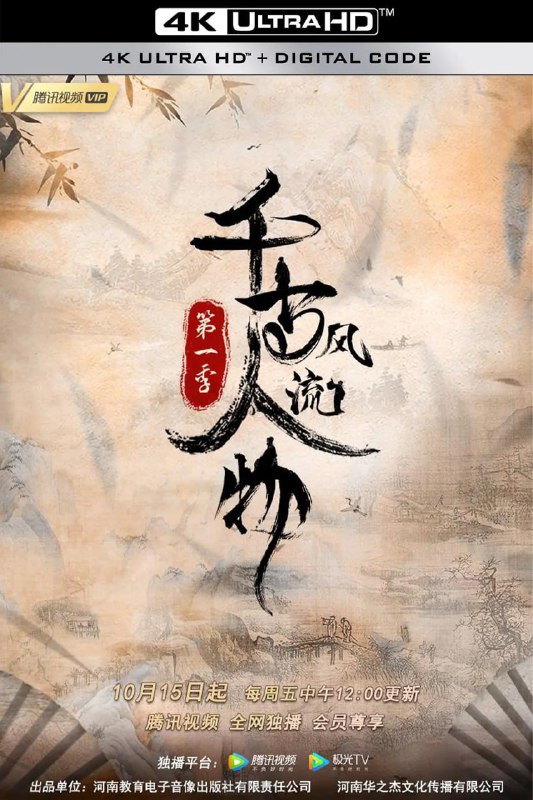 4K ULTRA HD™
4K ULTRA HD™ + DIGITAL CODE
腾讯视频 VIP
千古风流人物
第一季
10月15日起 每周五中午12:00更新
腾讯视频 全网独播 会员尊享
独播平台: 腾讯视频 不负好时光 极光TV
出品单位: 河南教育电子音像出版社有限责任公司 河南华之杰文化传播有限公司